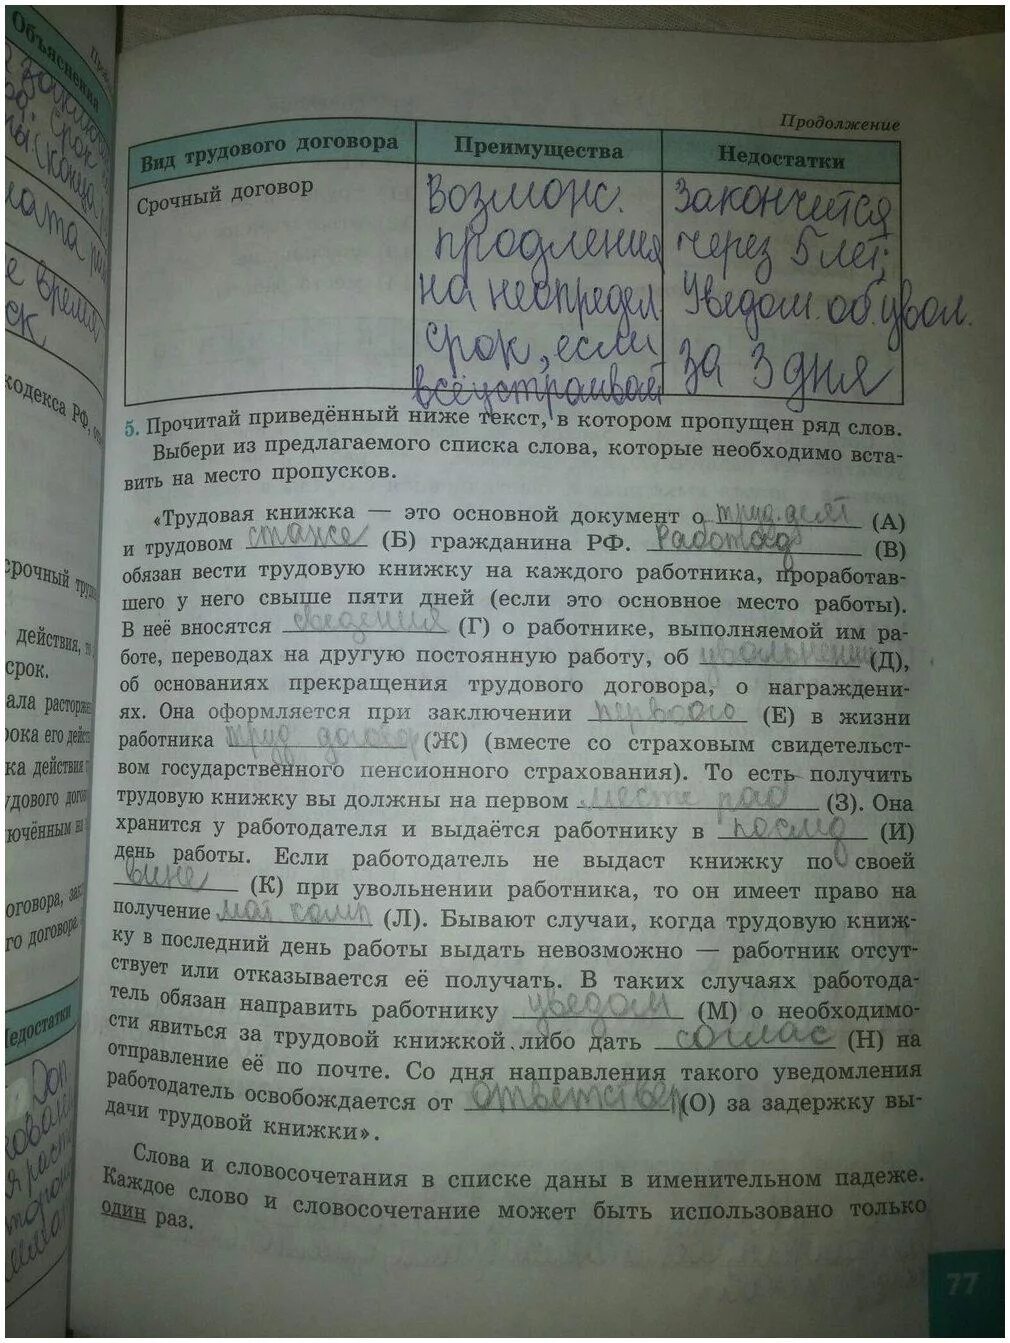 Объяснения
срок
Продолжение
Вид трудового договора Преимущества Недостатки
Срочный договор
Возможн.
продления
на неопредел
срок, если
всё устраивает
Закончится
через 5 лет;
Уведом. об. увол.
за 3 дня
5. Прочитай приведённый ниже текст, в котором пропущен ряд слов.
Выбери из предлагаемого списка слова, которые необходимо вста-
вить на место пропусков.
«Трудовая книжка — это основной документ о труд. деят (А)
и трудовом стаже (Б) гражданина РФ. Работод (В)
обязан вести трудовую книжку на каждого работника, проработав-
шего у него свыше пяти дней (если это основное место работы).
В неё вносятся сведения (Г) о работнике, выполняемой им ра-
боте, переводах на другую постоянную работу, об увольнении (Д),
об основаниях прекращения трудового договора, о награждени-
ях. Она оформляется при заключении первого (Е) в жизни
работника труд договор (Ж) (вместе со страховым свидетельст-
вом государственного пенсионного страхования). То есть получить
трудовую книжку вы должны на первом месте раб (З). Она
хранится у работодателя и выдаётся работнику в послед (И)
день работы. Если работодатель не выдаст книжку по своей
вине (К) при увольнении работника, то он имеет право на
получение мат комп (Л). Бывают случаи, когда трудовую книж-
ку в последний день работы выдать невозможно — работник отсут-
ствует или отказывается её получать. В таких случаях работода-
тель обязан направить работнику уведом (М) о необходимо-
сти явиться за трудовой книжкой либо дать соглас (Н) на
отправление её по почте. Со дня направления такого уведомления
работодатель освобождается от ответствен (О) за задержку вы-
дачи трудовой книжки».
Слова и словосочетания в списке даны в именительном падеже.
Каждое слово и словосочетание может быть использовано только
один раз.
77
кодекса РФ,
срочный
действия,
срок.
действия
говора,
го договора.
Недостатки
Доп